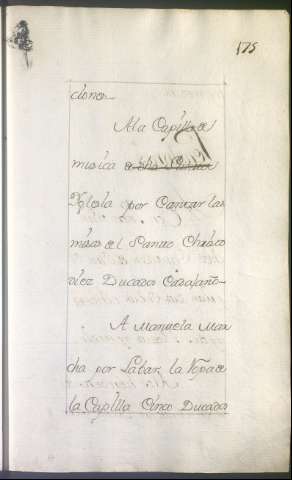 175
ciones
A la Capilla de
musica de dha
Yglesia por Cantar las
misas de el Santo Christo
diez Ducados Cada año
A Manuela Mar
cha por Labar la Ropa de
la Capilla Cinco Ducados